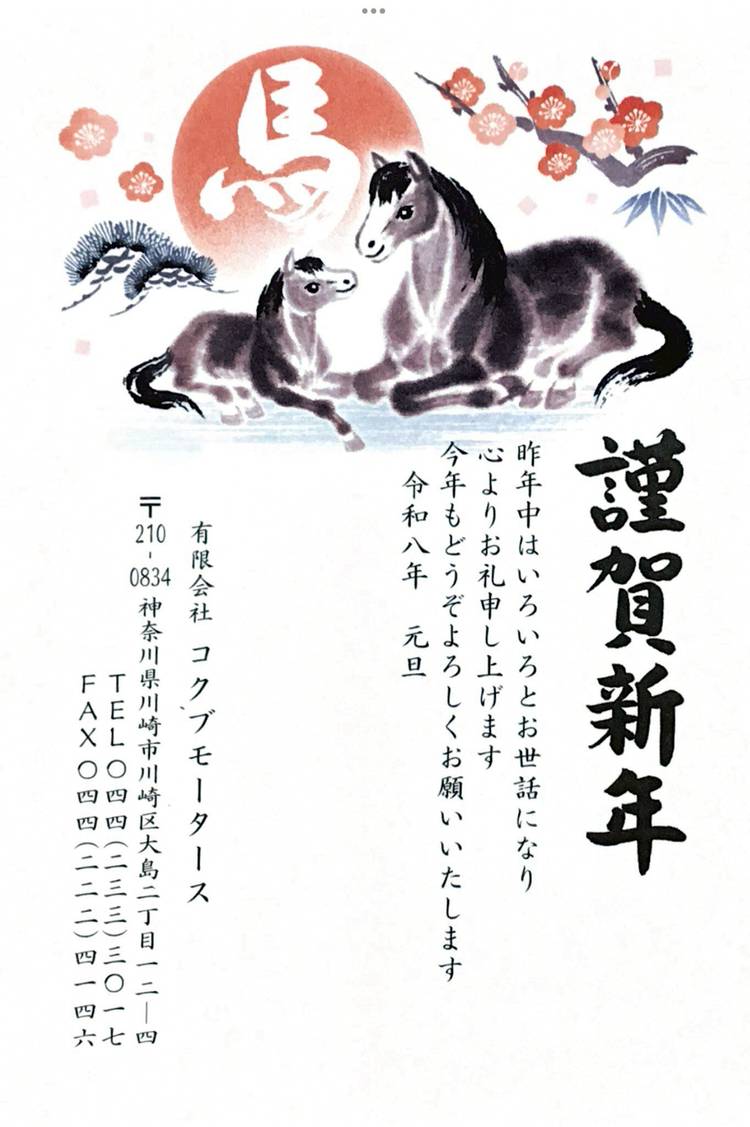 馬
謹賀新年
昨年中はいろいろとお世話になり
心よりお礼申し上げます
今年もどうぞよろしくお願いいたします
令和八年 元旦
有限会社 コクブモータース
〒210-0834 神奈川県川崎市川崎区大島二丁目一二―四
TEL〇四四(二三三)三〇一七
FAX〇四四(二二二)四一四六